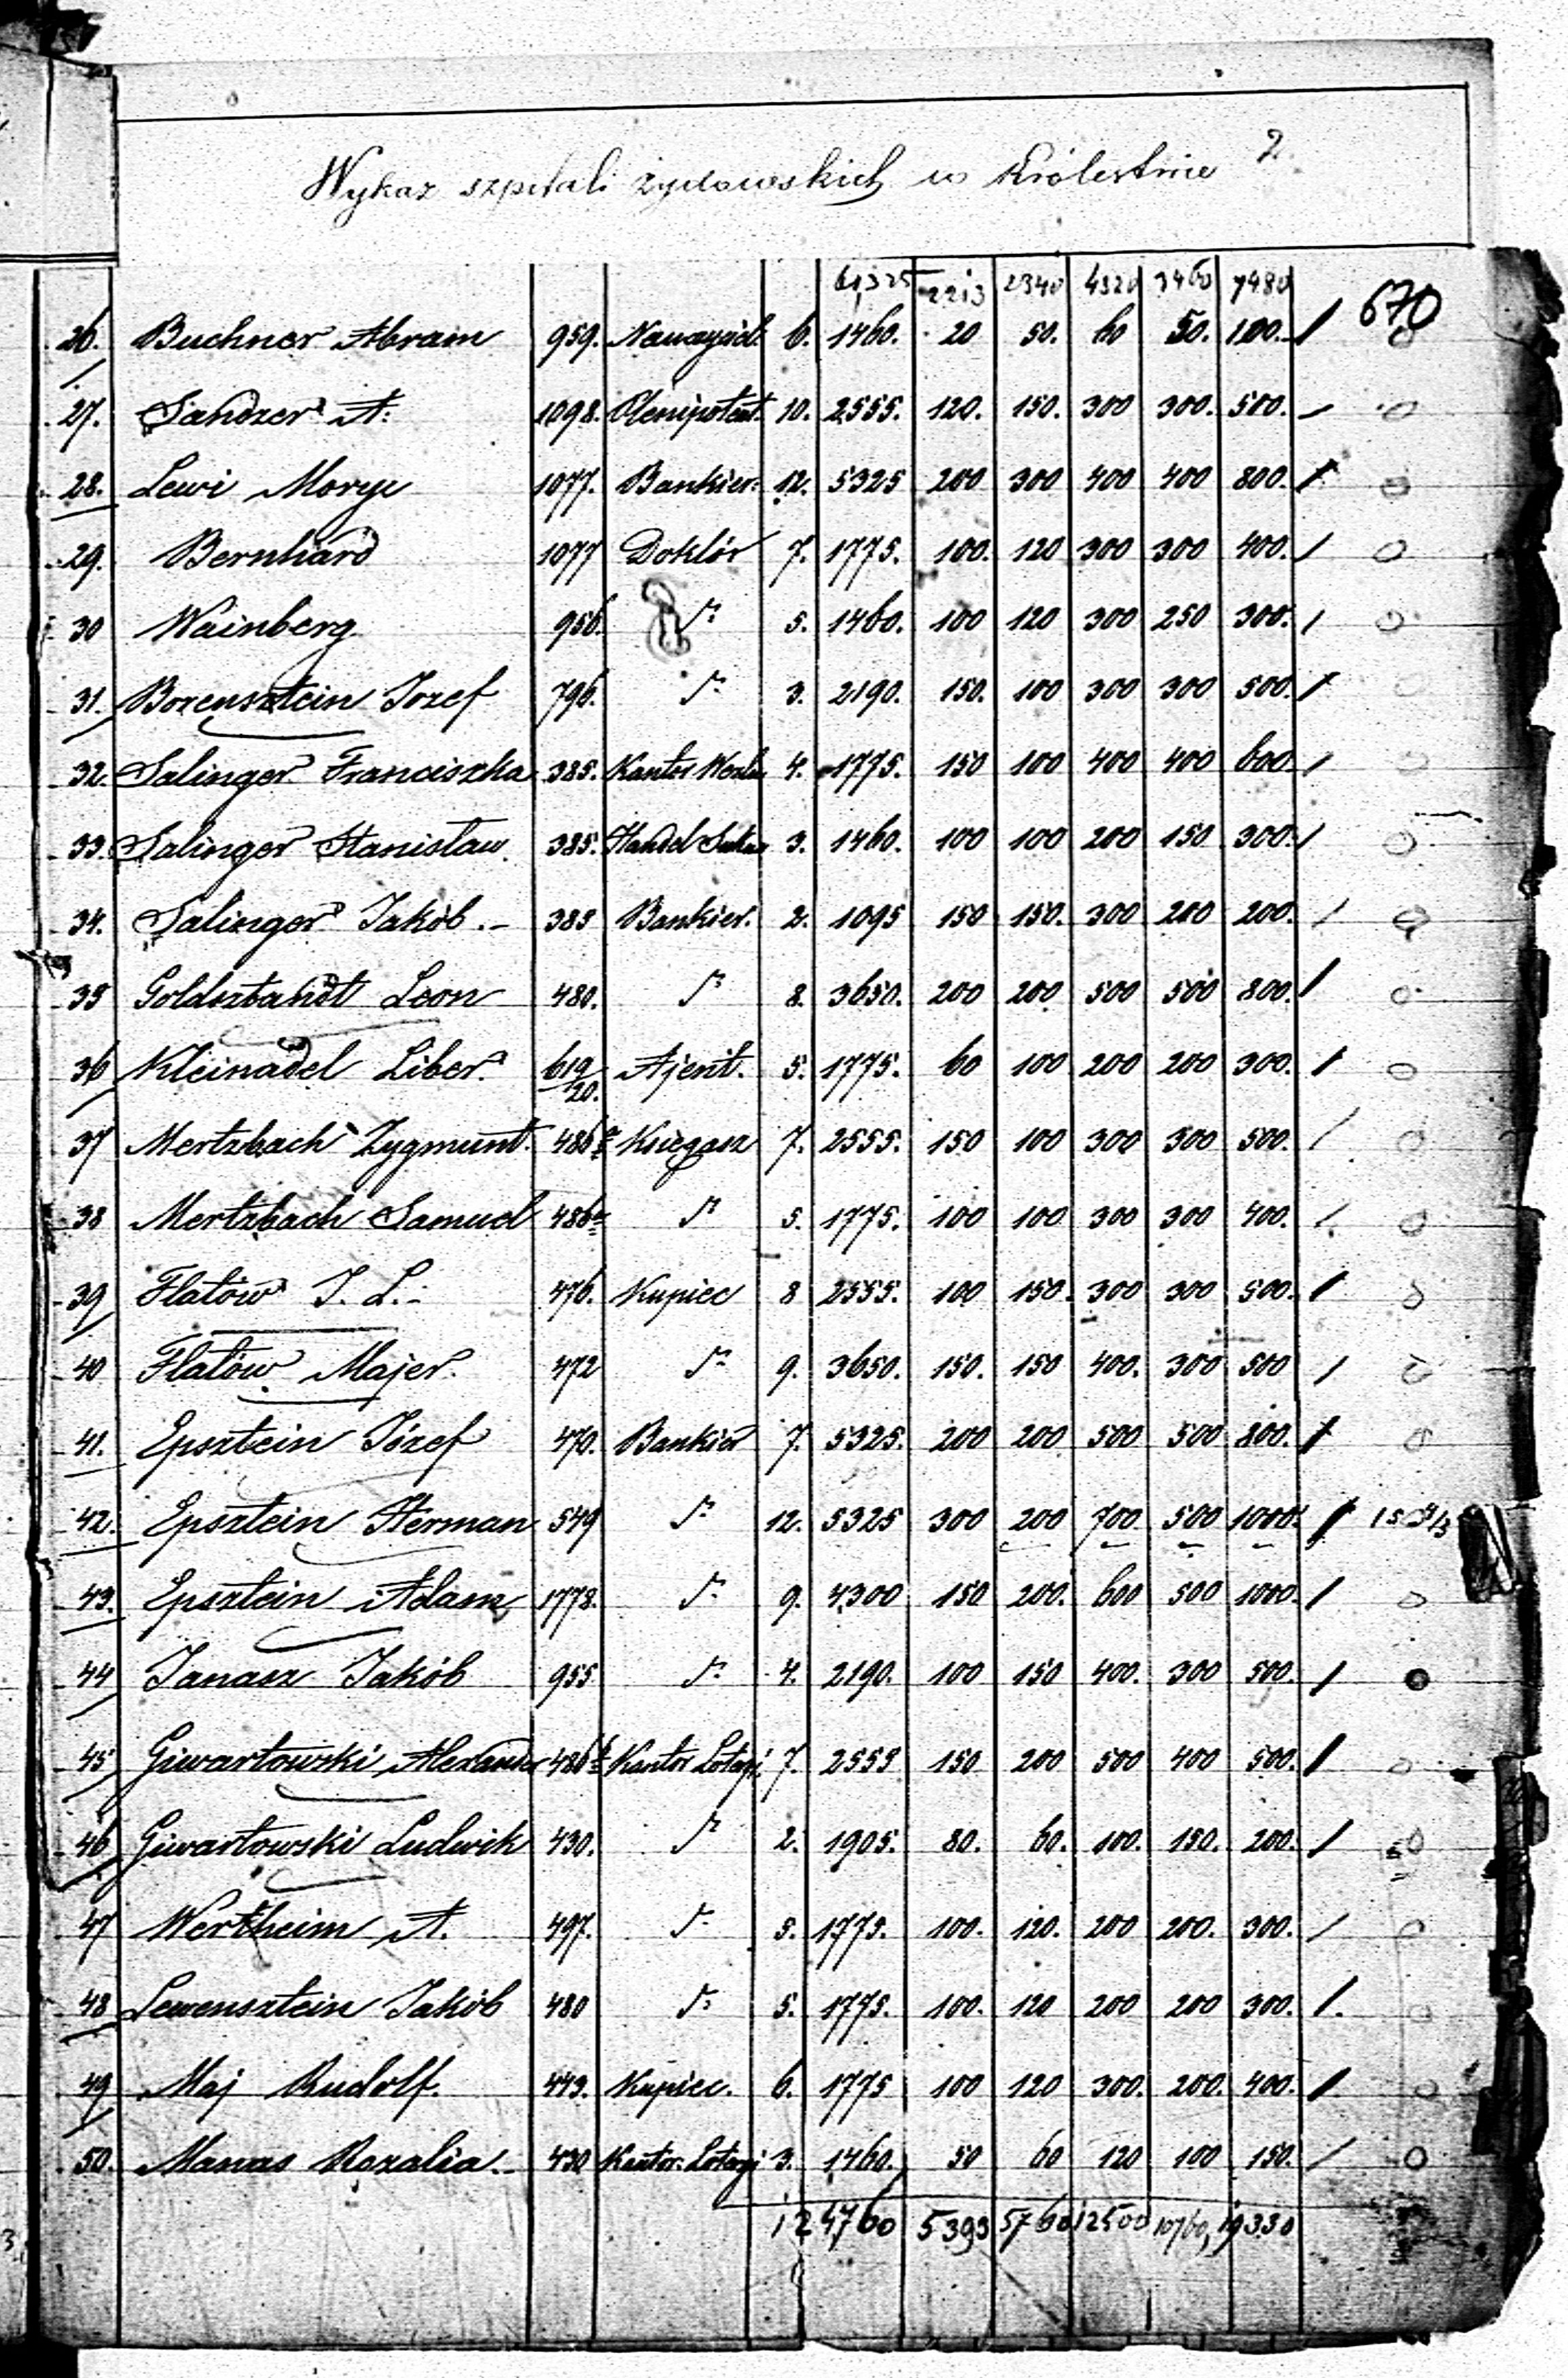 Wykaz szpitali żydowskich w Królestwie 2
61,325 2213 2340 4320 3460 7480
670
26. Buchner Abram 959. Nauczyciel 6. 1460. 20 50. 60 50. 100.
27. Sandzer A: 1098. Plenipotent. 10. 2555. 120. 150. 300 300. 500.
28. Lewi Moryc 1077. Bankier. 12. 5325 200 300 400 400 800.
29. Bernhard 1077 Doktór 7. 1775. 100. 120 300 300 400.
30 Wainberg 956. 5. 1460. 100 120 300 250 300.
31. Borensztein Jozef 796. 3. 2190. 150. 100 300 300 500.
32. Salinger Franciszka 385. Kantor 4. 1775. 150 100 400 400 600.
33. Salinger Stanisław 385. Handel 3. 1460. 100 100 200 150 300.
34. Salinger Jakób 385 Bankier. 2. 1095 150 150. 300 200 200.
35 Goldsztandt Leon 480. 8. 3650. 200 200 500 500 800.
36 Kleinadel Liber. 619/20. Ajent. 5. 1775. 60 100 200 200 300.
37 Mertzbach Zygmunt. 486 Księgarz 7. 2555. 150 100 300 300 500.
38 Mertzbach Samuel 486 5. 1775. 100 100 300 300 400.
39 Flatów J. L. 476. Kupiec 8 2555. 100 150. 300 300 500.
40 Flatów Majer. 472 9. 3650. 150. 150 400. 300 500
41. Epsztein Józef 470. Bankier 7. 5325. 200 200 500 500 800.
42. Epsztein Herman 549 12. 5325 300 200 700 500 1000.
43. Epsztein Adam 1778. 9. 4300 150 200. 600 500 1000.
44 Janasz Jakób 955 4. 2190. 100 150 400. 300 500.
45 Giwartowski Alexander 486 Kantor Loteryi 7. 2555 150 200 500 400 500.
46 Giwartowski Ludwik 430. 2. 1905. 80. 60. 100. 150. 200.
47 Wertheim A. 497. 5. 1775. 100. 120. 200 200. 300.
48 Lewensztein Jakób 480 5. 1775. 100. 120 200 200 300.
49 Maj Rudolf. 443. Kupiec. 6. 1775 100 120 300. 200. 400.
50. Manas Rozalia 430 Kantor. Loteryi 3. 1460. 50 60 120 100 150.
124760 5393 5760 12500 10760, 19330